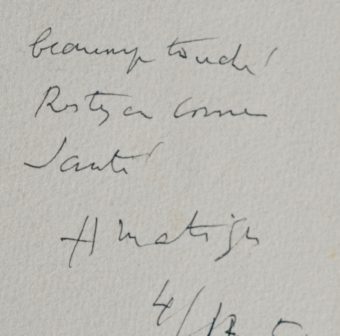 beaucoup touché
Restez en bonne
Santé
H Matisse
4/12